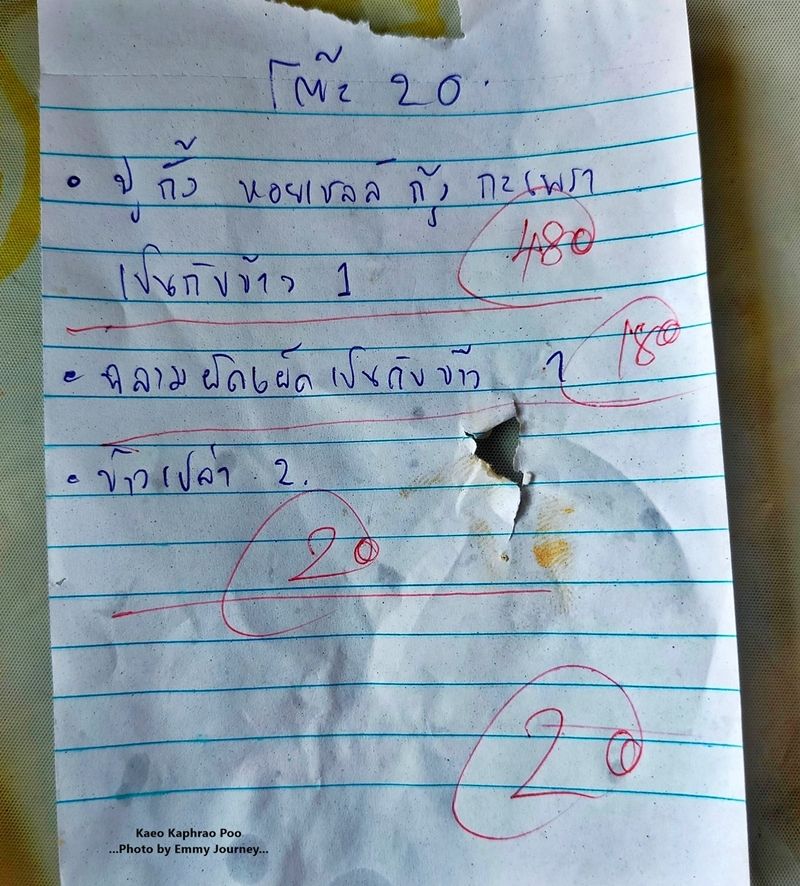 โต๊ะ 20.
• ปู กั้ง หอยเชลล์ กุ้ง กะเพรา
480
เป็นกับข้าว 1
180
• ฉลามผัดเผ็ดเป็นกับข้าว 1
• ข้าวเปล่า 2.
20
20
Kaeo Kaphrao Poo
...Photo by Emmy Journey...